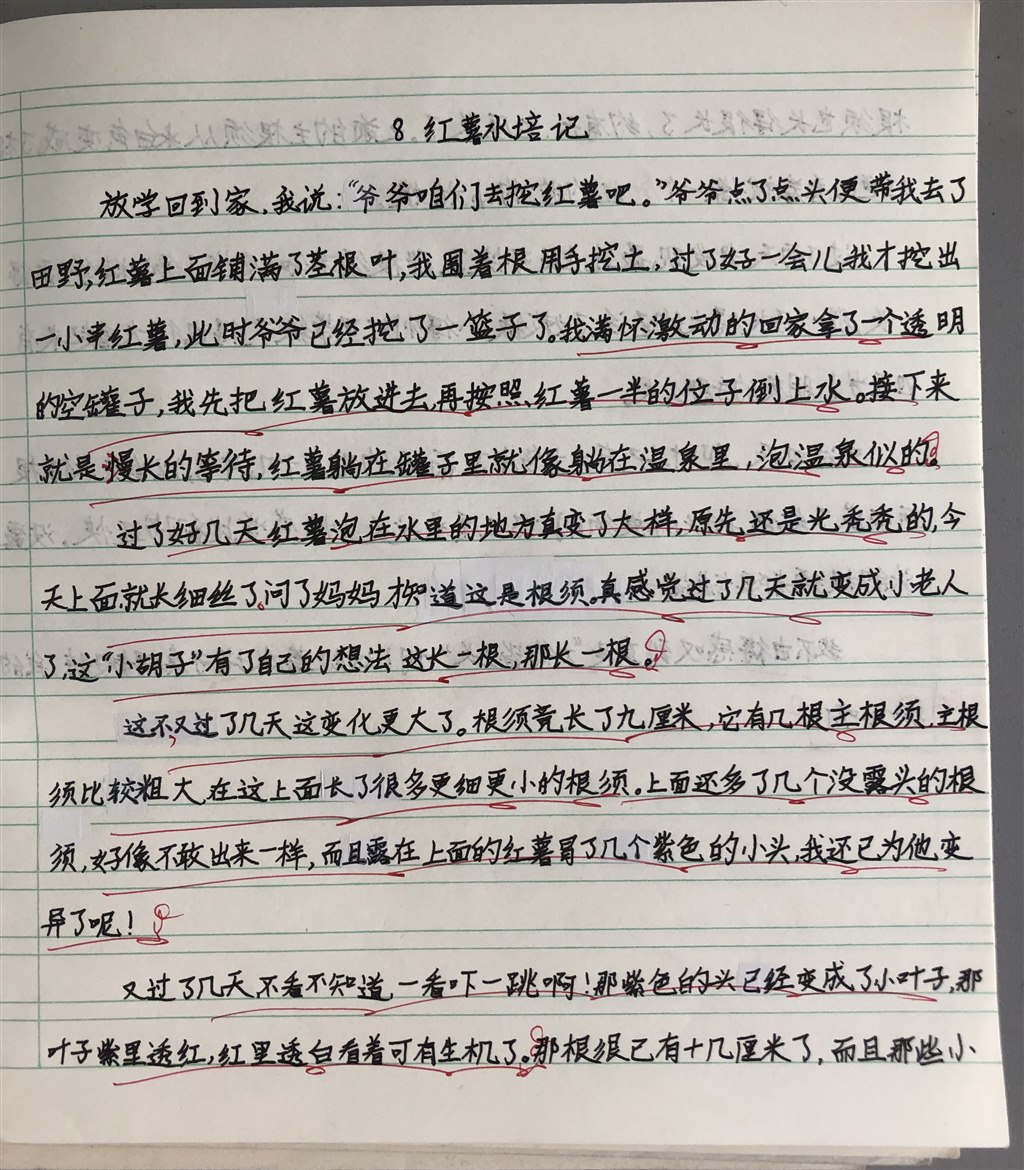 8 红薯水培记
放学回到家,我说:“爷爷咱们去挖红薯吧。”爷爷点了点头便带我去了
田野,红薯上面铺满了茎根叶,我围着根用手挖土,过了好一会儿我才挖出
一小半红薯,此时爷爷已经挖了一篮子了。我满怀激动的回家拿了一个透明
的空罐子,我先把红薯放进去,再按照红薯一半的位子倒上水。接下来
就是慢长的等待,红薯躺在罐子里就像躺在温泉里,泡温泉似的。
过了好几天红薯泡在水里的地方真变了大样,原先还是光秃秃的,今
天上面就长细丝了,问了妈妈才知道这是根须。真感觉过了几天就变成小老人
了,这“小胡子”有了自己的想法 这长一根,那长一根。
这不,又过了几天这变化更大了。根须竟长了九厘米,它有几根主根须,主根
须比较粗大,在这上面长了很多更细更小的根须。上面还多了几个没露头的根
须,好像不敢出来一样,而且露在上面的红薯冒了几个紫色的小头,我还已为他变
异了呢!
又过了几天 不看不知道,一看吓一跳啊!那紫色的头已经变成了小叶子,那
叶子紫里透红,红里透白看着可有生机了。那根须已有十几厘米了,而且那些小